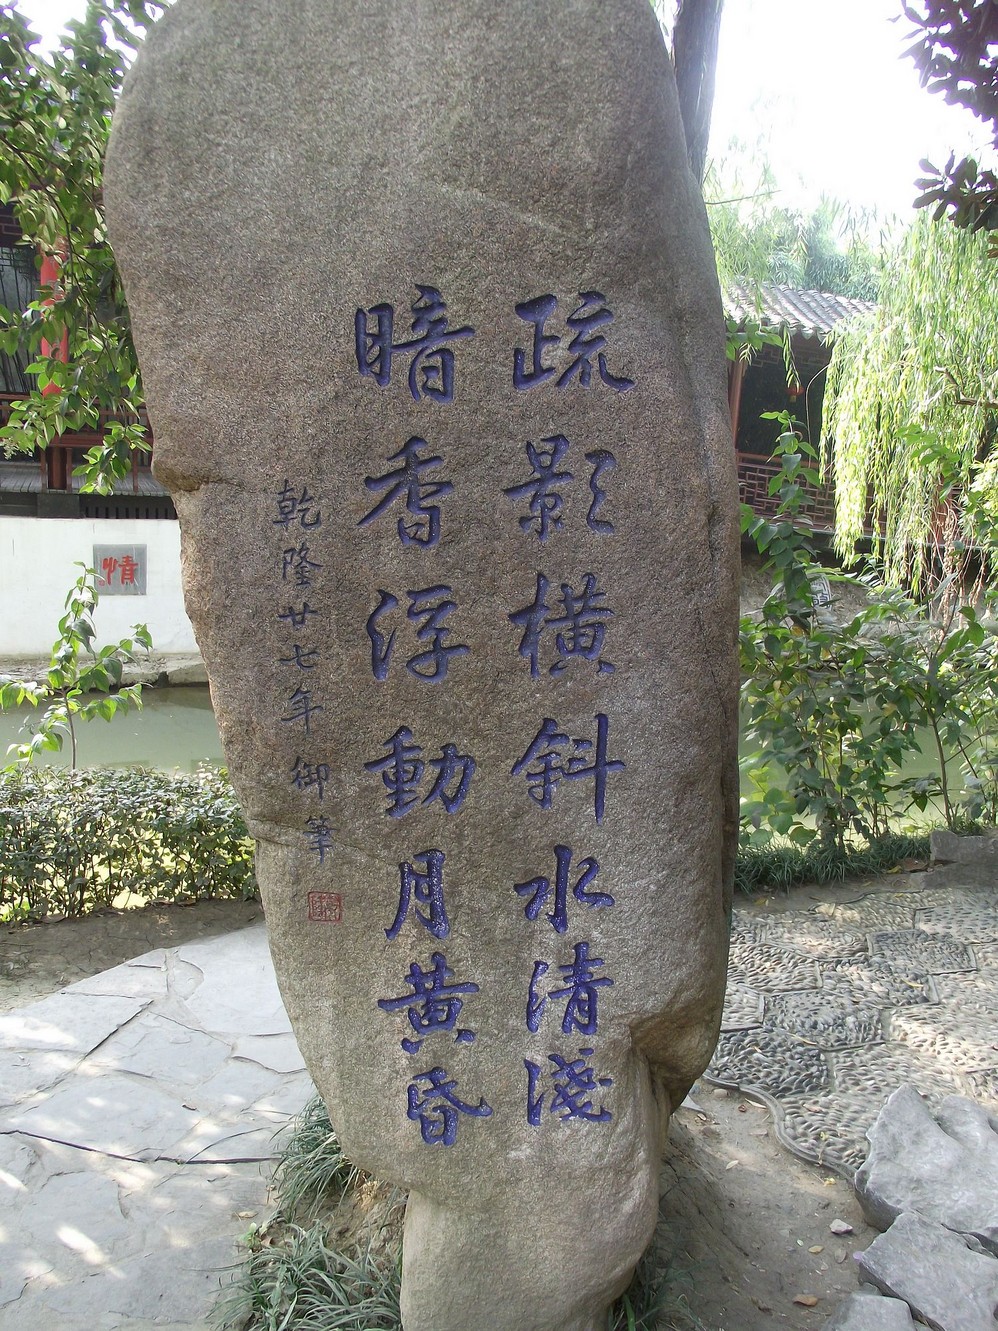 疏影橫斜水清淺
暗香浮動月黃昏
乾隆廿七年御筆
情